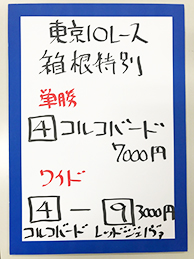 東京10レース
箱根特別
単勝
4 コルコバード
7000円
ワイド
4 - 9 3000円
コルコバード レッドジェノヴァ